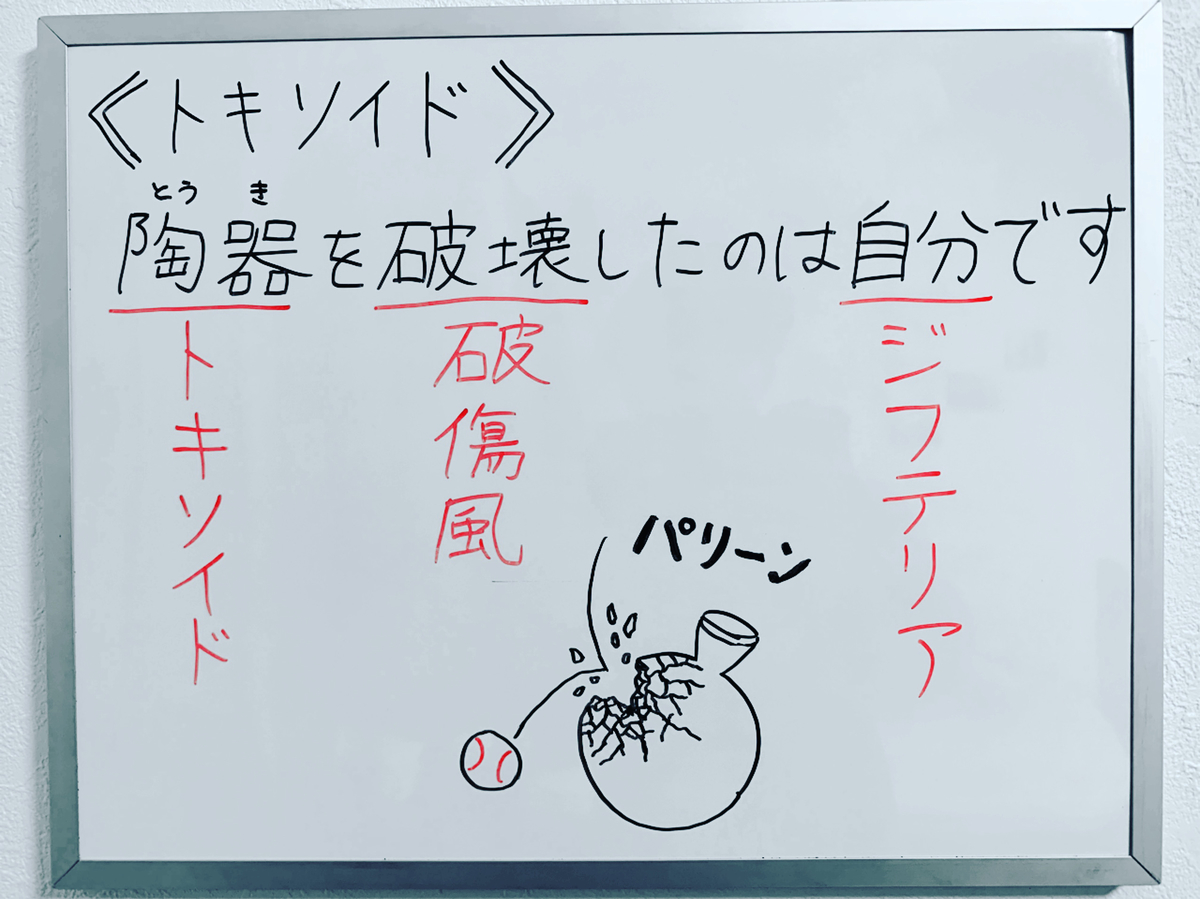 《トキソイド》
とうき
陶器を破壊したのは自分です
トキソイド
破傷風
ジフテリア
パリーン